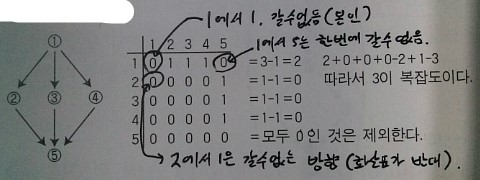 1에서 1. 갈수없음(본인)
1에서 5는 한번에 갈수 없음.
①
② ③ ④
⑤
1 2 3 4 5
1 0 1 1 1 0 =3-1=2 2+0+0+0-2+1-3
2 0 0 0 0 1 =1-1=0 따라서 3이 복잡도이다.
3 0 0 0 0 1 =1-1=0
4 0 0 0 0 1 =1-1=0
5 0 0 0 0 0 =모두 0인 것은 제외한다.
2에서 1은 갈수없는 방향 (화살표가 반대).